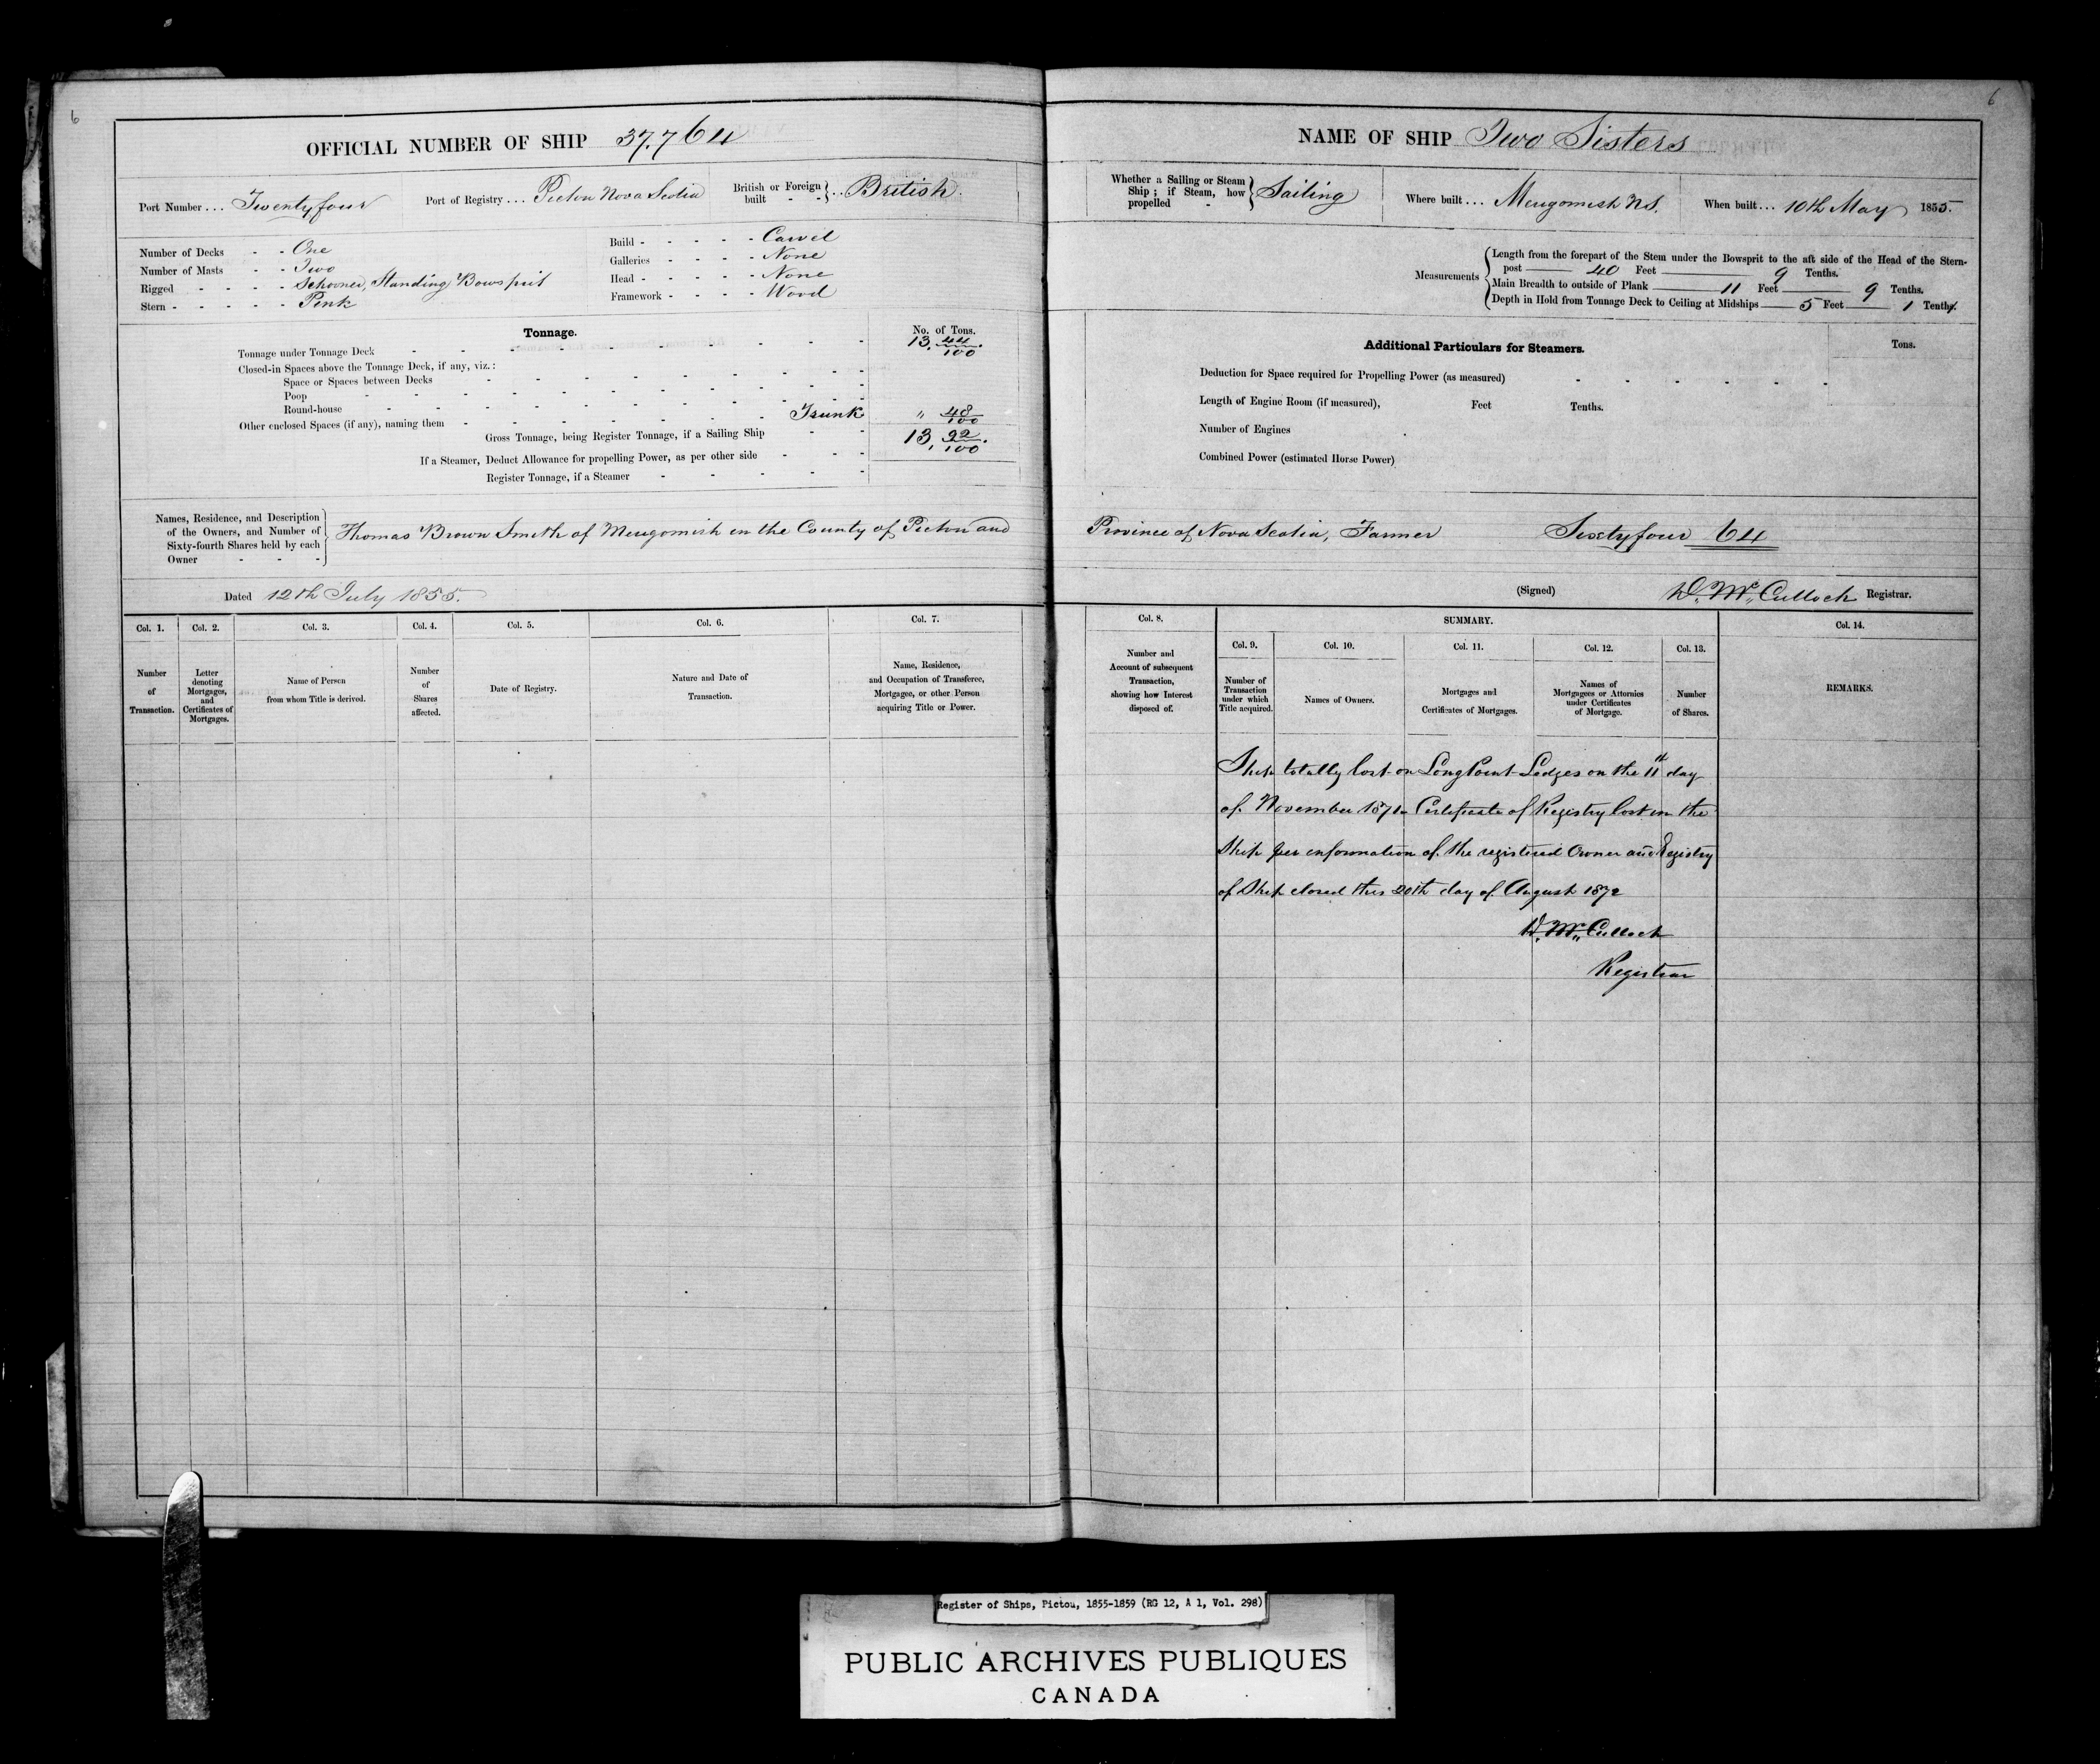 6
OFFICIAL NUMBER OF SHIP 37.764
Port Number ... Twentyfour Port of Registry ... Pictou Nova Scotia British or Foreign built - - } .. British.
Number of Decks - - One
Number of Masts - - Two
Rigged - - - - Schooner, Standing Bowsprit
Stern - - - - - Pink
Build - - - - - Carvel
Galleries - - - - None
Head - - - - - None
Framework - - - - Wood
Tonnage.
No. of Tons.
Tonnage under Tonnage Deck 13. 44/100.
Closed-in Spaces above the Tonnage Deck, if any, viz.:
Space or Spaces between Decks
Poop
Round-house
Other enclosed Spaces (if any), naming them Trunk " 48/100
Gross Tonnage, being Register Tonnage, if a Sailing Ship 13. 92/100.
If a Steamer, Deduct Allowance for propelling Power, as per other side
Register Tonnage, if a Steamer
Names, Residence, and Description
of the Owners, and Number of
Sixty-fourth Shares held by each
Owner
Thomas Brown Smith of Merigomish in the County of Pictou and
Dated 12th July 1855.
Col. 1. Col. 2. Col. 3. Col. 4. Col. 5. Col. 6. Col. 7.
Number of Transaction.
Letter denoting Mortgages, and Certificates of Mortgages.
Name of Person from whom Title is derived.
Number of Shares affected.
Date of Registry.
Nature and Date of Transaction.
Name, Residence, and Occupation of Transferee, Mortgagee, or other Person acquiring Title or Power.
6
NAME OF SHIP Two Sisters
Whether a Sailing or Steam Ship; if Steam, how propelled - } Sailing Where built ... Merigomish N.S. When built ... 10th May 1855.
Measurements
Length from the forepart of the Stem under the Bowsprit to the aft side of the Head of the Stern-
post 40 Feet 9 Tenths.
Main Breadth to outside of Plank 11 Feet 9 Tenths.
Depth in Hold from Tonnage Deck to Ceiling at Midships 5 Feet 1 Tenths.
Additional Particulars for Steamers.
Tons.
Deduction for Space required for Propelling Power (as measured)
Length of Engine Room (if measured), Feet Tenths.
Number of Engines
Combined Power (estimated Horse Power)
Province of Nova Scotia, Farmer Sixtyfour 64
(Signed) D. McCulloch Registrar.
Col. 8. SUMMARY. Col. 14.
Col. 9. Col. 10. Col. 11. Col. 12. Col. 13.
Number and Account of subsequent Transaction, showing how Interest disposed of.
Number of Transaction under which Title acquired.
Names of Owners.
Mortgages and Certificates of Mortgages.
Names of Mortgagees or Attornies under Certificates of Mortgage.
Number of Shares.
REMARKS.
Ship totally lost on Long Point Ledges on the 11th day
of November 1871. Certificate of Registry lost in the
Ship per information of the registered Owner and Registry
of Ship closed this 20th day of August 1872
D. McCulloch
Registrar
Register of Ships, Pictou, 1855-1859 (RG 12, A 1, Vol. 298)
PUBLIC ARCHIVES PUBLIQUES
CANADA